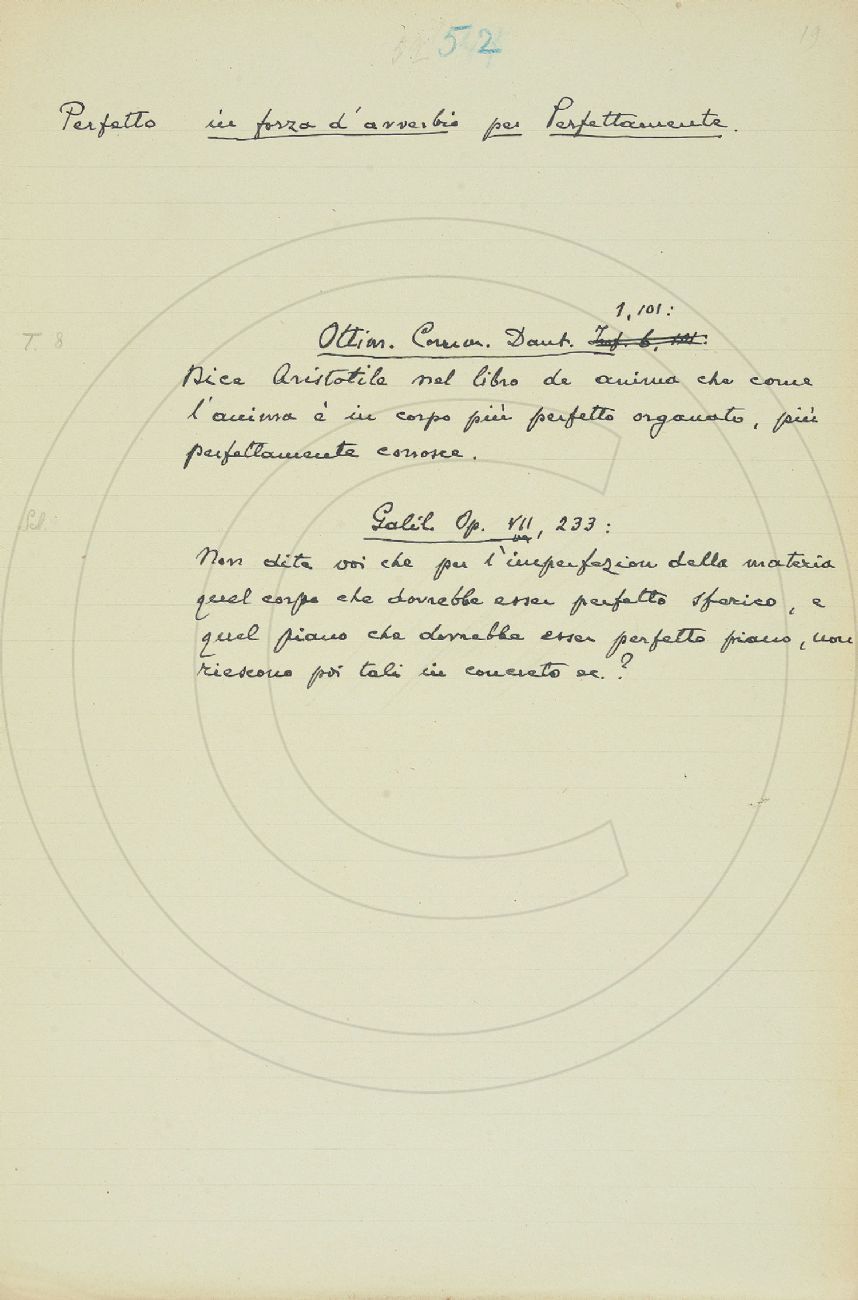 52
19
Perfetto in forza d'avverbio per Perfettamente.
1, 101:
T. 8
Ottim. Comm. Dant. Inf. 6, 101:
Dice Aristotile nel libro de anima che come
l'anima è in corpo più perfetto organato, più
perfettamente conosce.
Galil. Op. VII, 233:
Non dite voi che per l'imperfezion della materia
quel corpo che dovrebbe esser perfetto sferico, e
quel piano che dovrebbe esser perfetto piano, non
riescono poi tali in concreto ec.?